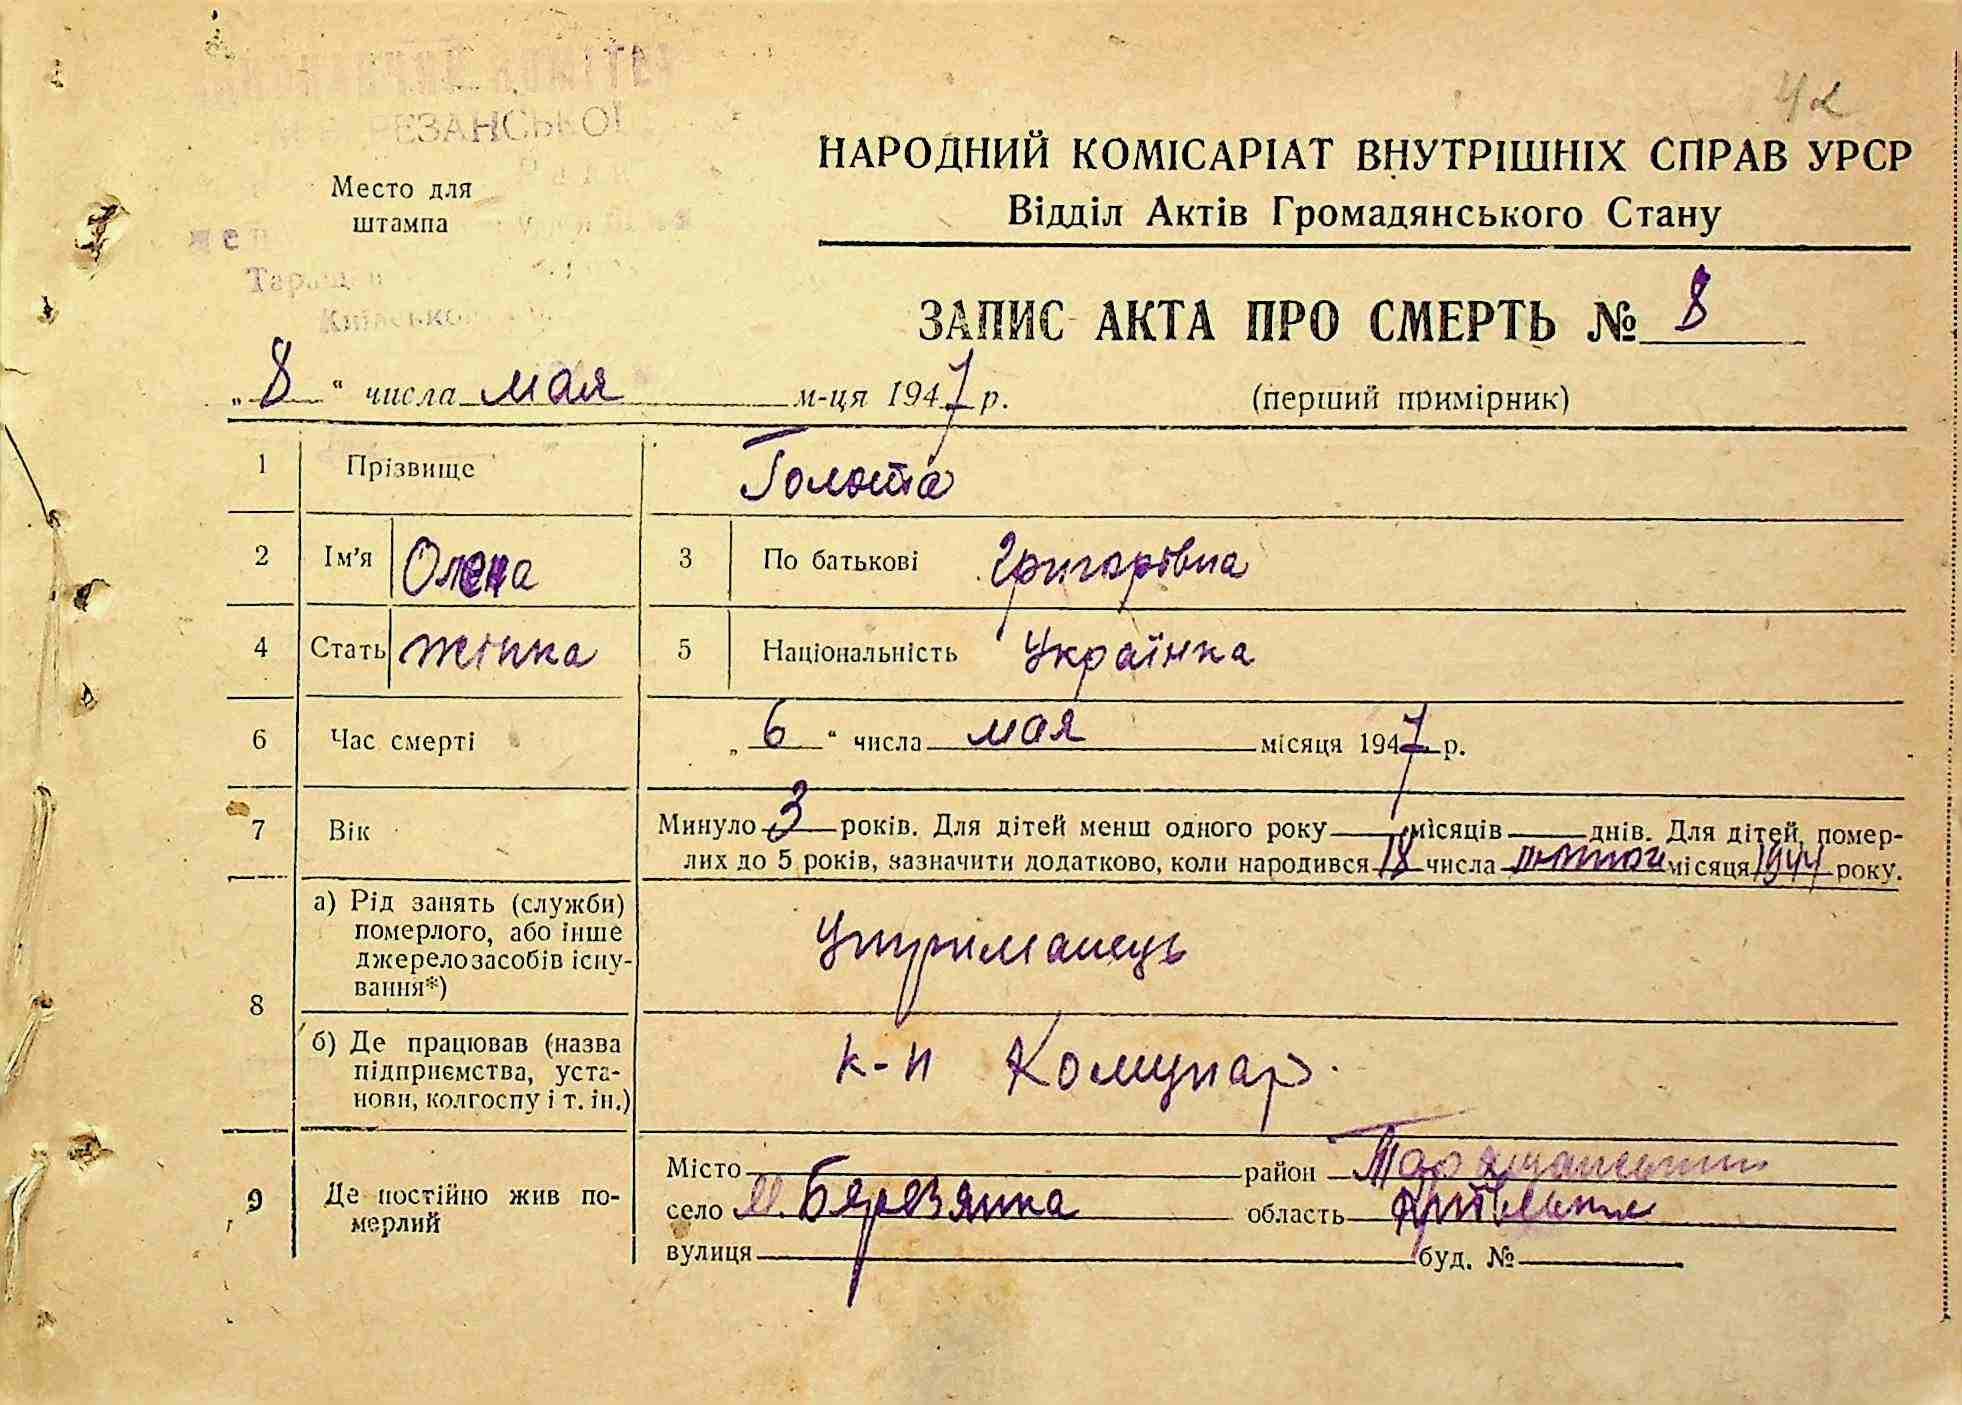 42
РЕЗАНСЬКОЇ
НАРОДНИЙ КОМІСАРІАТ ВНУТРІШНІХ СПРАВ УРСР
Відділ Актів Громадянського Стану
Место для
штампа
ЗАПИС АКТА ПРО СМЕРТЬ № 8
„8“ числа мая м-ця 1947 р. (перший примірник)
1 Прізвище Голота
2 Ім'я Олена 3 По батькові Григорівна
4 Стать жінка 5 Національність Українка
6 Час смерті „6“ числа мая місяця 1947 р.
7 Вік Минуло 3 років. Для дітей менш одного року місяців днів. Для дітей, помер-
лих до 5 років, зазначити додатково, коли народився 18 числа лютого місяця 1944 року.
8 а) Рід занять (служби)
померлого, або інше
джерело засобів існу-
вання*)
Утриманець
б) Де працював (назва
підприємства, уста-
нови, колгоспу і т. ін.)
к-п Комунар.
9 Де постійно жив по-
мерлий
Місто район Таращанський
село М. Березянка область Київська
вулиця буд. №